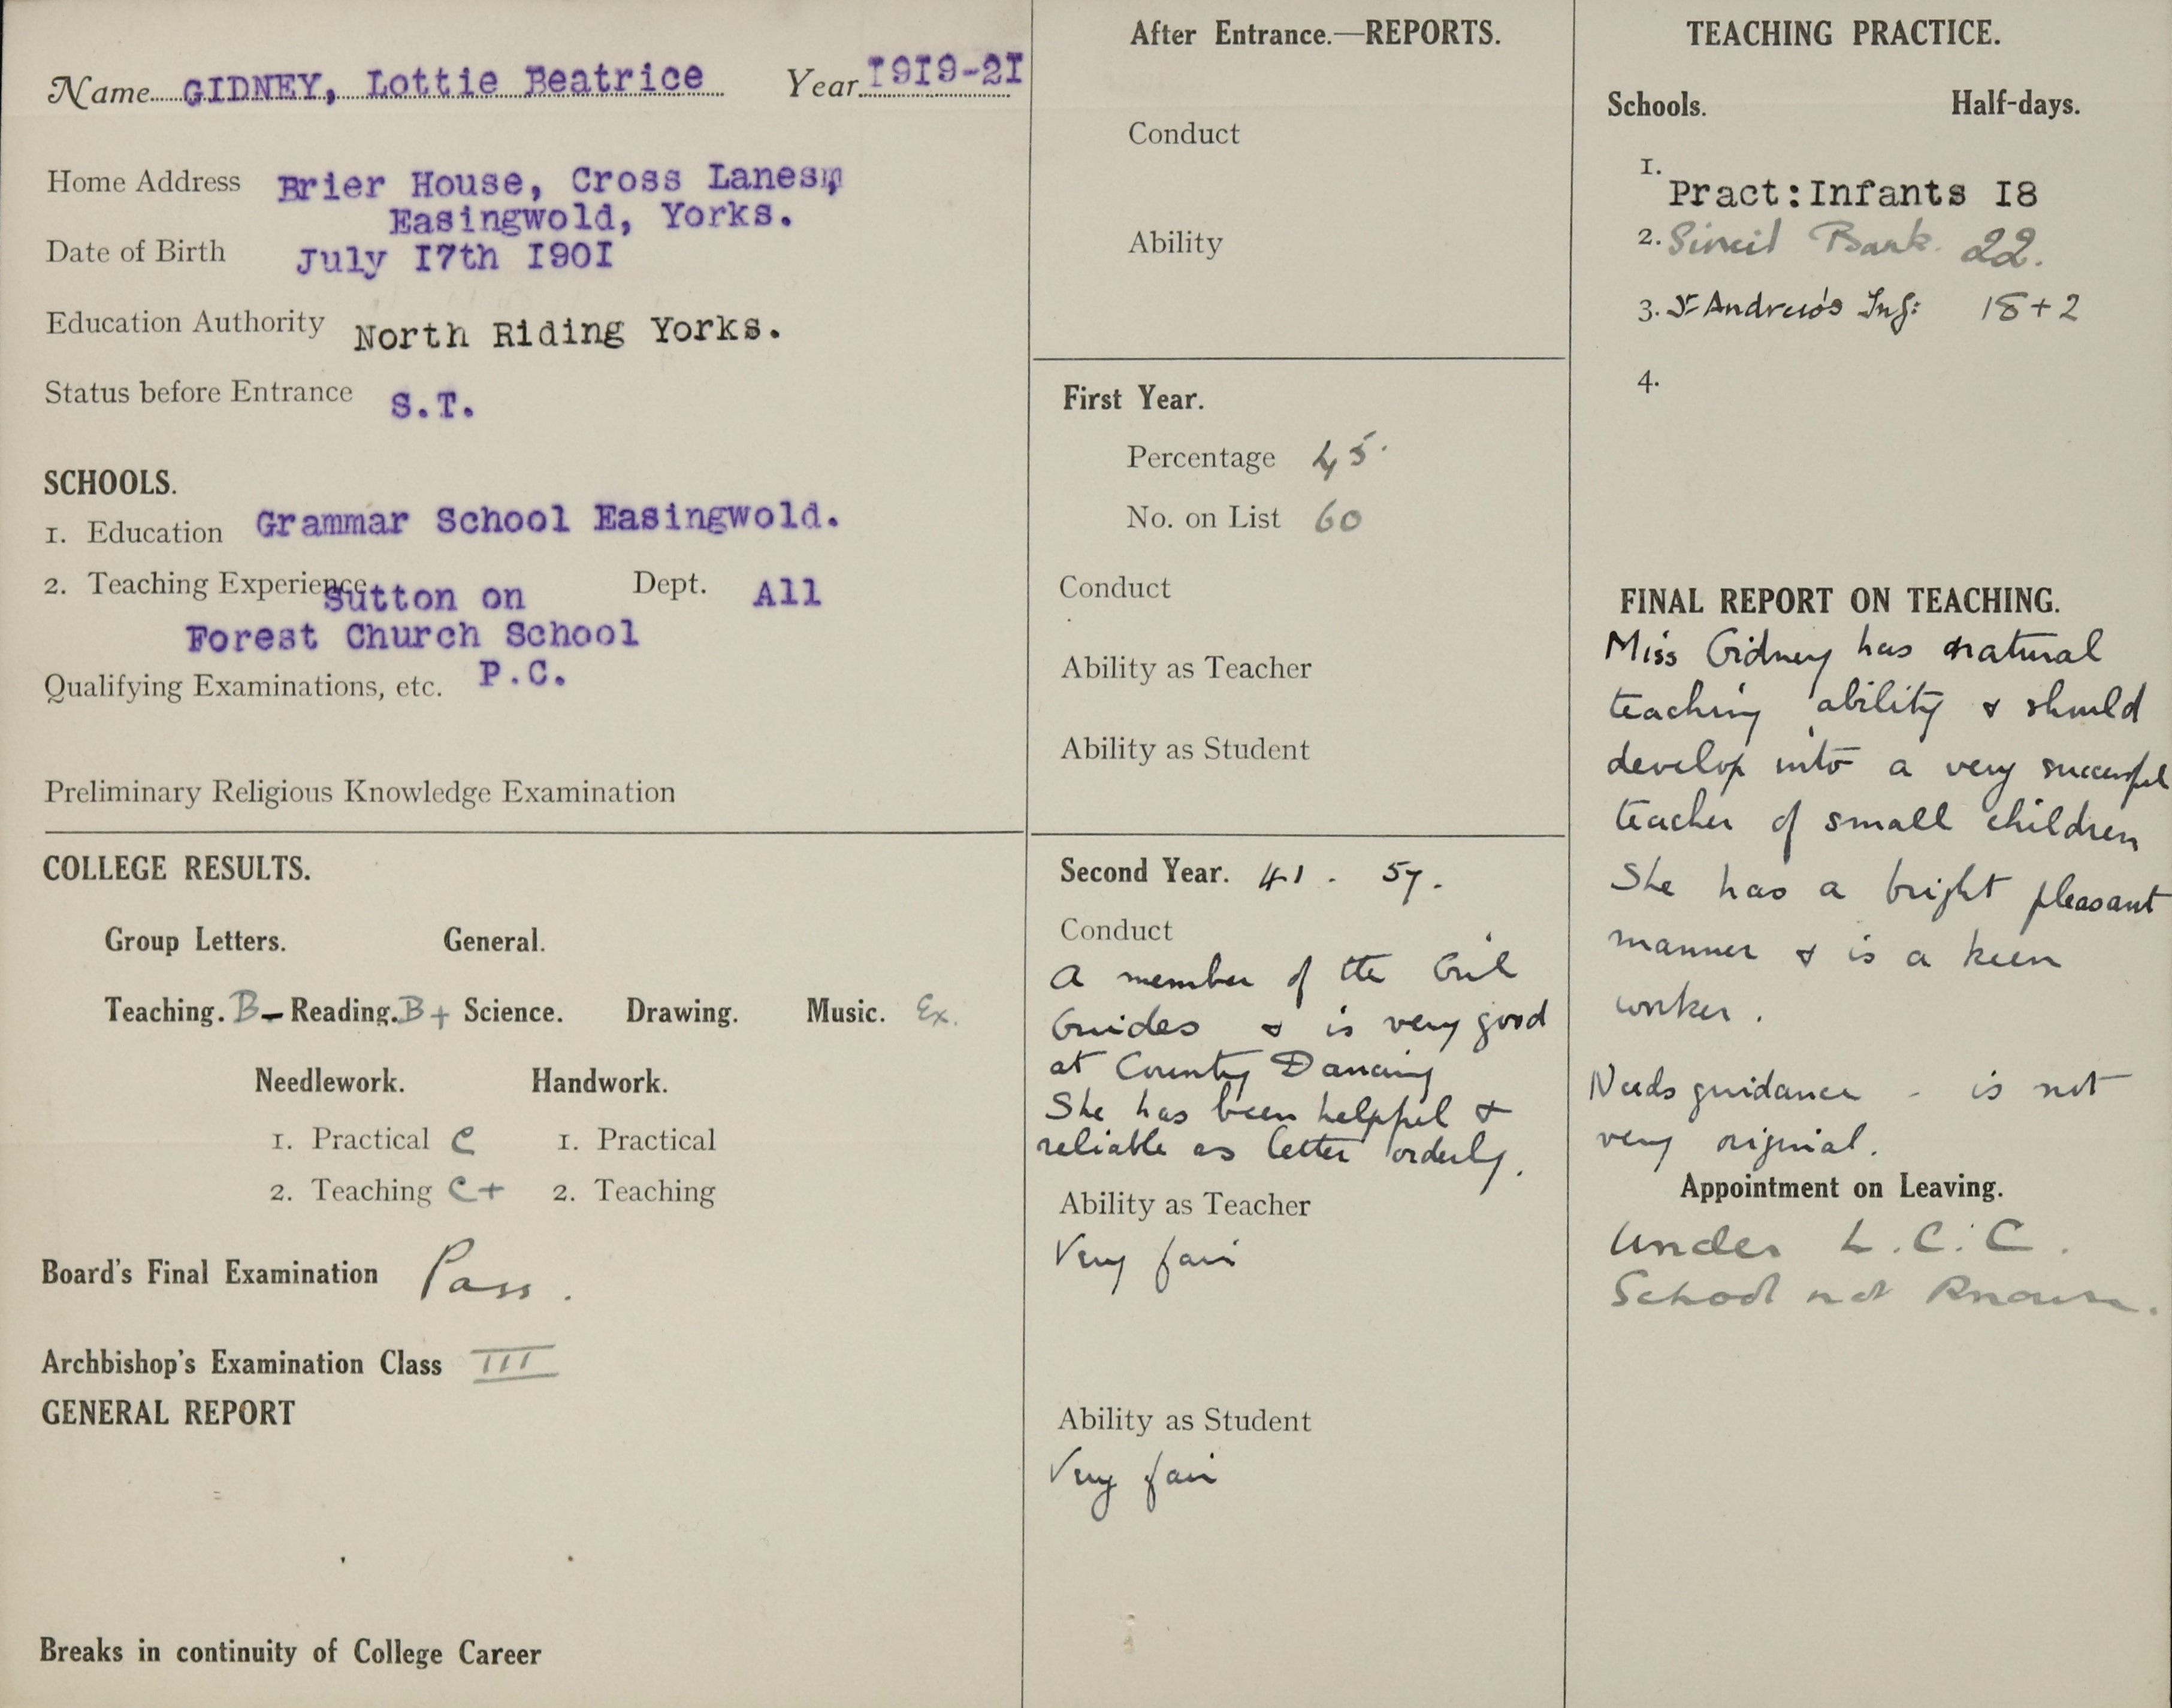 Name GIDNEY, Lottie Beatrice Year 1919-21
Home Address Brier House, Cross Lanes,
Easingwold, Yorks.
Date of Birth July 17th 1901
Education Authority North Riding Yorks.
Status before Entrance S.T.
SCHOOLS.
1. Education Grammar School Easingwold.
2. Teaching Experience Sutton on Dept. All
Forest Church School
Qualifying Examinations, etc. P.C.
Preliminary Religious Knowledge Examination
COLLEGE RESULTS.
Group Letters. General.
Teaching. B- Reading. B+ Science. Drawing. Music. Ex.
Needlework. Handwork.
1. Practical C 1. Practical
2. Teaching C+ 2. Teaching
Board's Final Examination Pass.
Archbishop's Examination Class III
GENERAL REPORT
Breaks in continuity of College Career
After Entrance.—REPORTS.
Conduct
Ability
First Year.
Percentage 45.
No. on List 60
Conduct
Ability as Teacher
Ability as Student
Second Year. 41. 57.
Conduct
A member of the Girl
Guides & is very good
at Country Dancing
She has been helpful &
reliable as letter orderly.
Ability as Teacher
Very fair
Ability as Student
Very fair
TEACHING PRACTICE.
Schools. Half-days.
1.
Pract:Infants 18
2. Sincil Bank. 22.
3. St Andrew's Inf: 18+2
4.
FINAL REPORT ON TEACHING.
Miss Gidney has natural
teaching ability & should
develop into a very successful
teacher of small children
She has a bright pleasant
manner & is a keen
worker.
Needs guidance - is not
very original.
Appointment on Leaving.
Under L.C.C.
School not known.